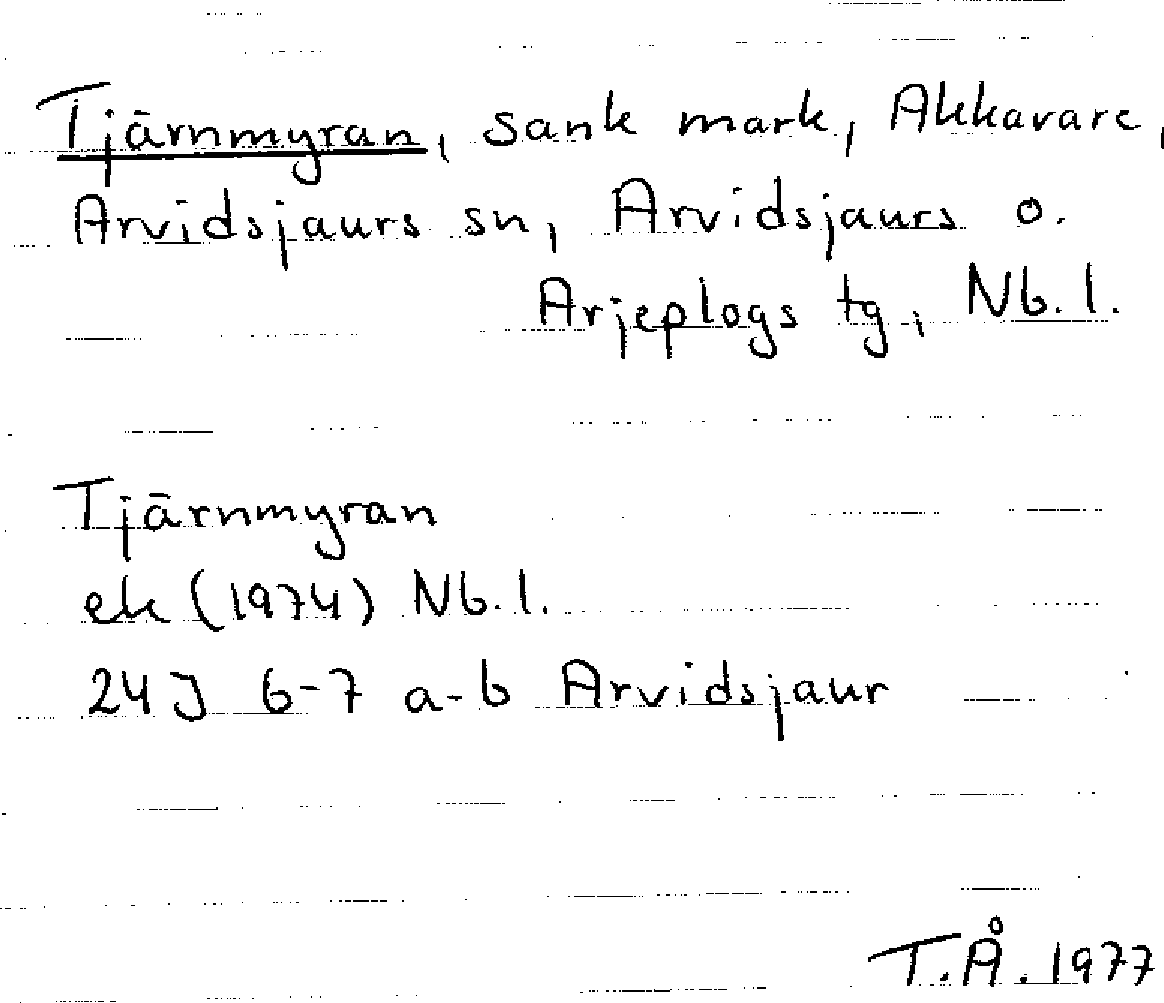 Tjärnmyran, sank mark, Akkavare,
Arvidsjaurs sn, Arvidsjaurs o.
Arjeplogs tg, Nb.l.
Tjärnmyran
ek (1974) Nb.l.
24J 6-7 a-b Arvidsjaur
T.Å. 1977